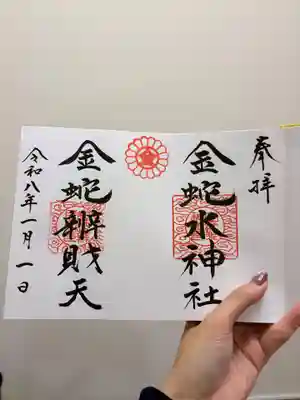 奉拝
金蛇水神社
金蛇辨財天
令和八年一月一日